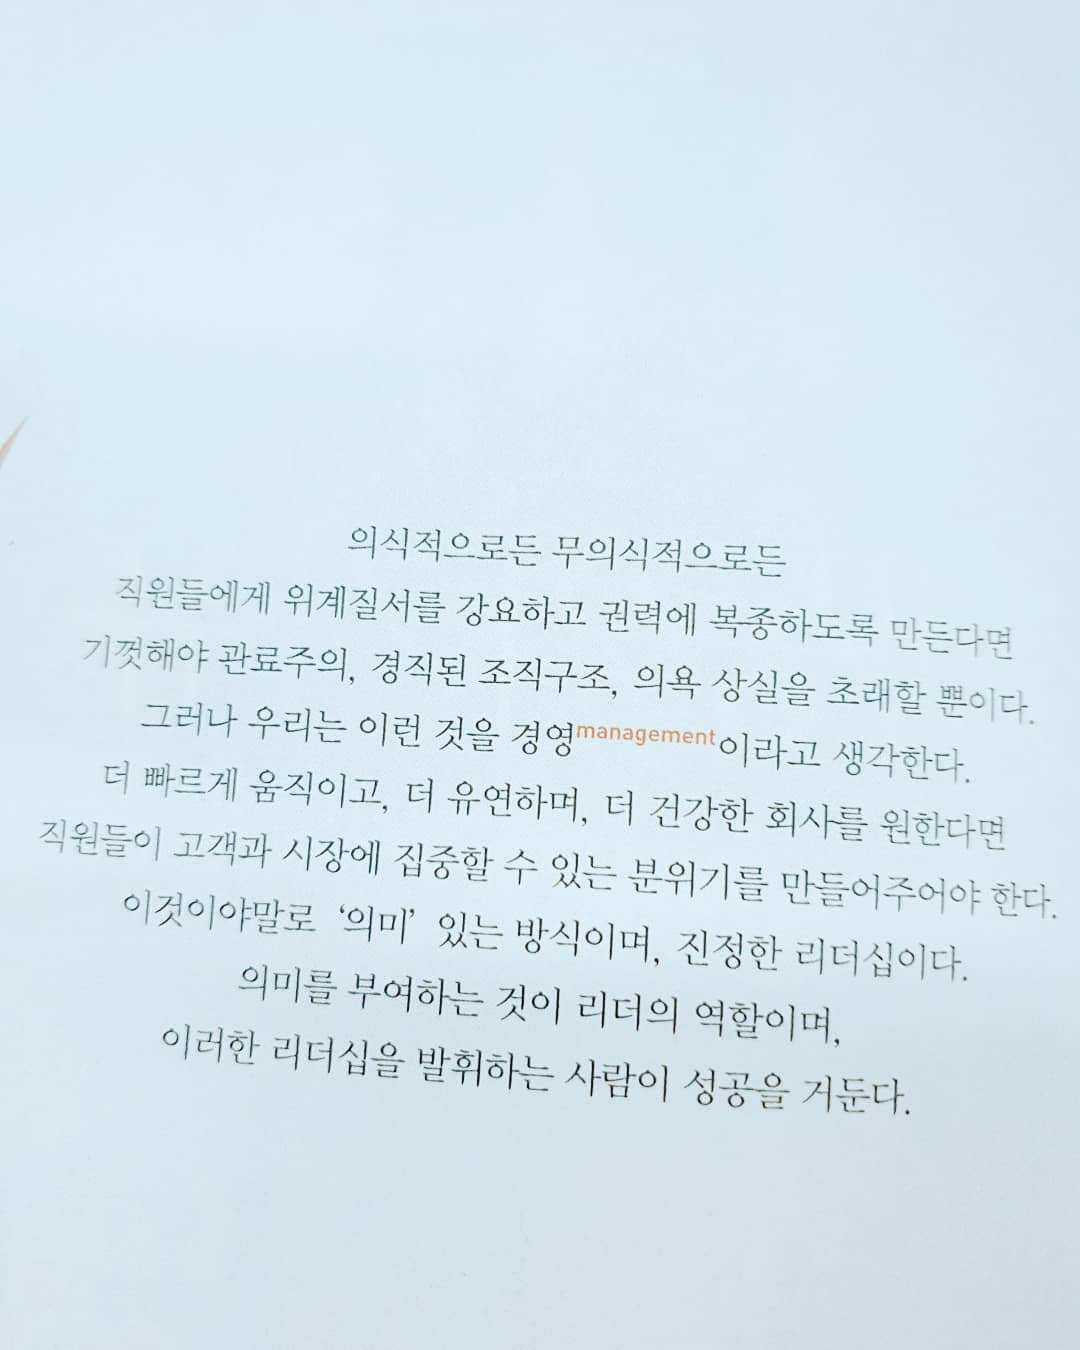 의식적으로든 무의식적으로든
직원들에게 위계질서를 강요하고 권력에 복종하도록 만든다면
기껏해야 관료주의, 경직된 조직구조, 의욕 상실을 초래할 뿐이다.
그러나 우리는 이런 것을 경영management이라고 생각한다.
더 빠르게 움직이고, 더 유연하며, 더 건강한 회사를 원한다면
직원들이 고객과 시장에 집중할 수 있는 분위기를 만들어주어야 한다.
이것이야말로 ‘의미’ 있는 방식이며, 진정한 리더십이다.
의미를 부여하는 것이 리더의 역할이며,
이러한 리더십을 발휘하는 사람이 성공을 거둔다.